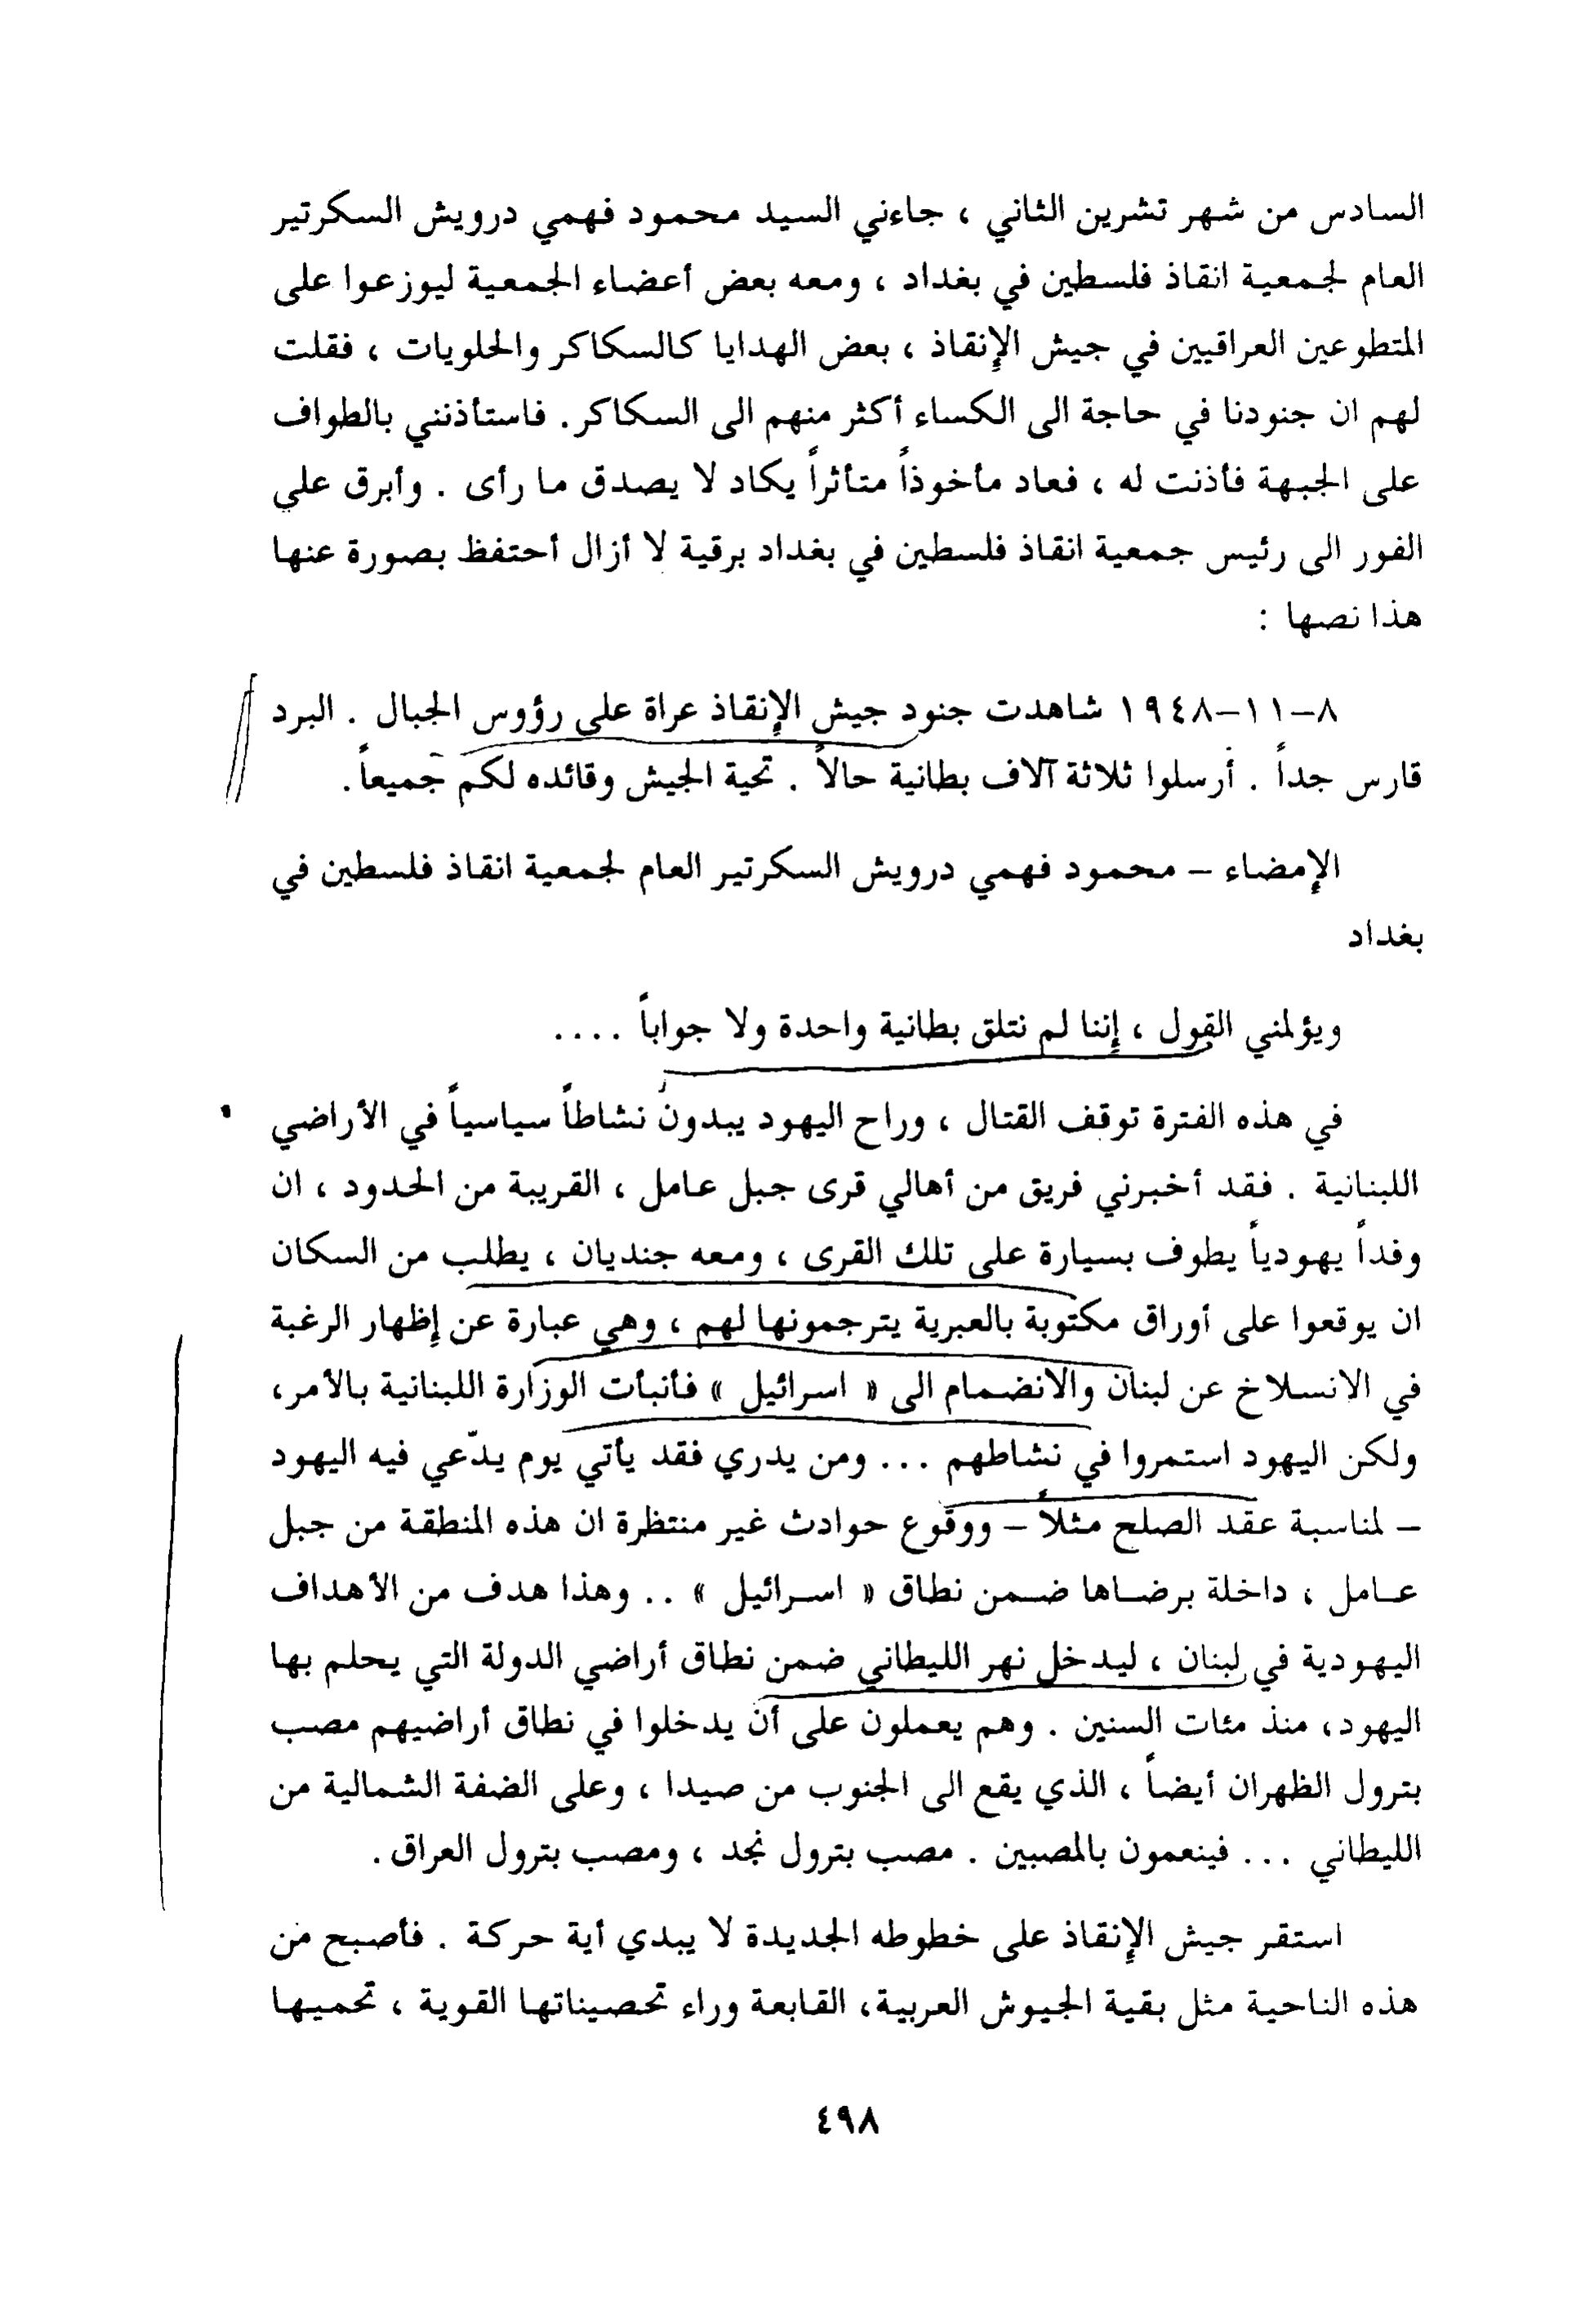 السادس من شهر تشرين الثاني ، جاءني السيد محمود فهمي درويش السكرتير
العام لجمعية انقاذ فلسطين في بغداد ، ومعه بعض أعضاء الجمعية ليوزعوا على
المتطوعين العراقيين في جيش الإنقاذ ، بعض الهدايا كالسكاكر والحلويات ، فقلت
لهم ان جنودنا في حاجة الى الكساء أكثر منهم الى السكاكر. فاستأذنني بالطواف
على الجبهة فأذنت له ، فعاد مأخوذاً متأثراً يكاد لا يصدق ما رأى . وأبرق علي
الفور الى رئيس جمعية انقاذ فلسطين في بغداد برقية لا أزال أحتفظ بصورة عنها
هذا نصها :
٨-١١-١٩٤٨ شاهدت جنود جيش الإنقاذ عراة على رؤوس الجبال . البرد
قارس جداً . أرسلوا ثلاثة آلاف بطانية حالاً . تحية الجيش وقائده لكم جميعاً.
الإمضاء - محمود فهمي درويش السكرتير العام لجمعية انقاذ فلسطين في
بغداد
ويؤلمني القول ، إننا لم نتلق بطانية واحدة ولا جواباً ....
في هذه الفترة توقف القتال ، وراح اليهود يبدون نشاطاً سياسياً في الأراضي
اللبنانية . فقد أخبرني فريق من أهالي قرى جبل عامل ، القريبة من الحدود ، ان
وفداً يهودياً يطوف بسيارة على تلك القرى ، ومعه جنديان ، يطلب من السكان
ان يوقعوا على أوراق مكتوبة بالعبرية يترجمونها لهم ، وهي عبارة عن إظهار الرغبة
في الانسلاخ عن لبنان والانضمام الى « اسرائيل » فأنبأت الوزارة اللبنانية بالأمر،
ولكن اليهود استمروا في نشاطهم ... ومن يدري فقد يأتي يوم يدّعي فيه اليهود
- لمناسبة عقد الصلح مثلاً - ووقوع حوادث غير منتظرة ان هذه المنطقة من جبل
عامل ، داخلة برضاها ضمن نطاق « اسرائيل » .. وهذا هدف من الأهداف
اليهودية في لبنان ، ليدخل نهر الليطاني ضمن نطاق أراضي الدولة التي يحلم بها
اليهود، منذ مئات السنين . وهم يعملون على أن يدخلوا في نطاق أراضيهم مصب
بترول الظهران أيضاً ، الذي يقع الى الجنوب من صيدا ، وعلى الضفة الشمالية من
الليطاني ... فينعمون بالمصبين . مصب بترول نجد ، ومصب بترول العراق.
استقر جيش الإنقاذ على خطوطه الجديدة لا يبدي أية حركة . فأصبح من
هذه الناحية مثل بقية الجيوش العربية، القابعة وراء تحصيناتها القوية ، تحميها
٤٩٨